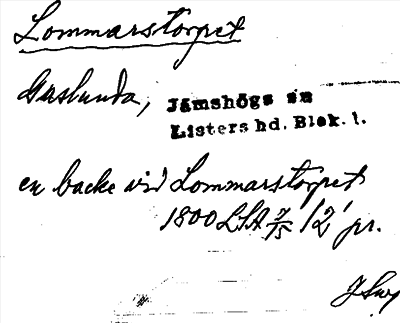 Lommarstorpet
Gaslunda,
Jämshögs sn
Listers hd. Blek. l.
en backe vid Lommarstorpet
1800 LSA 7/15 12 pr.